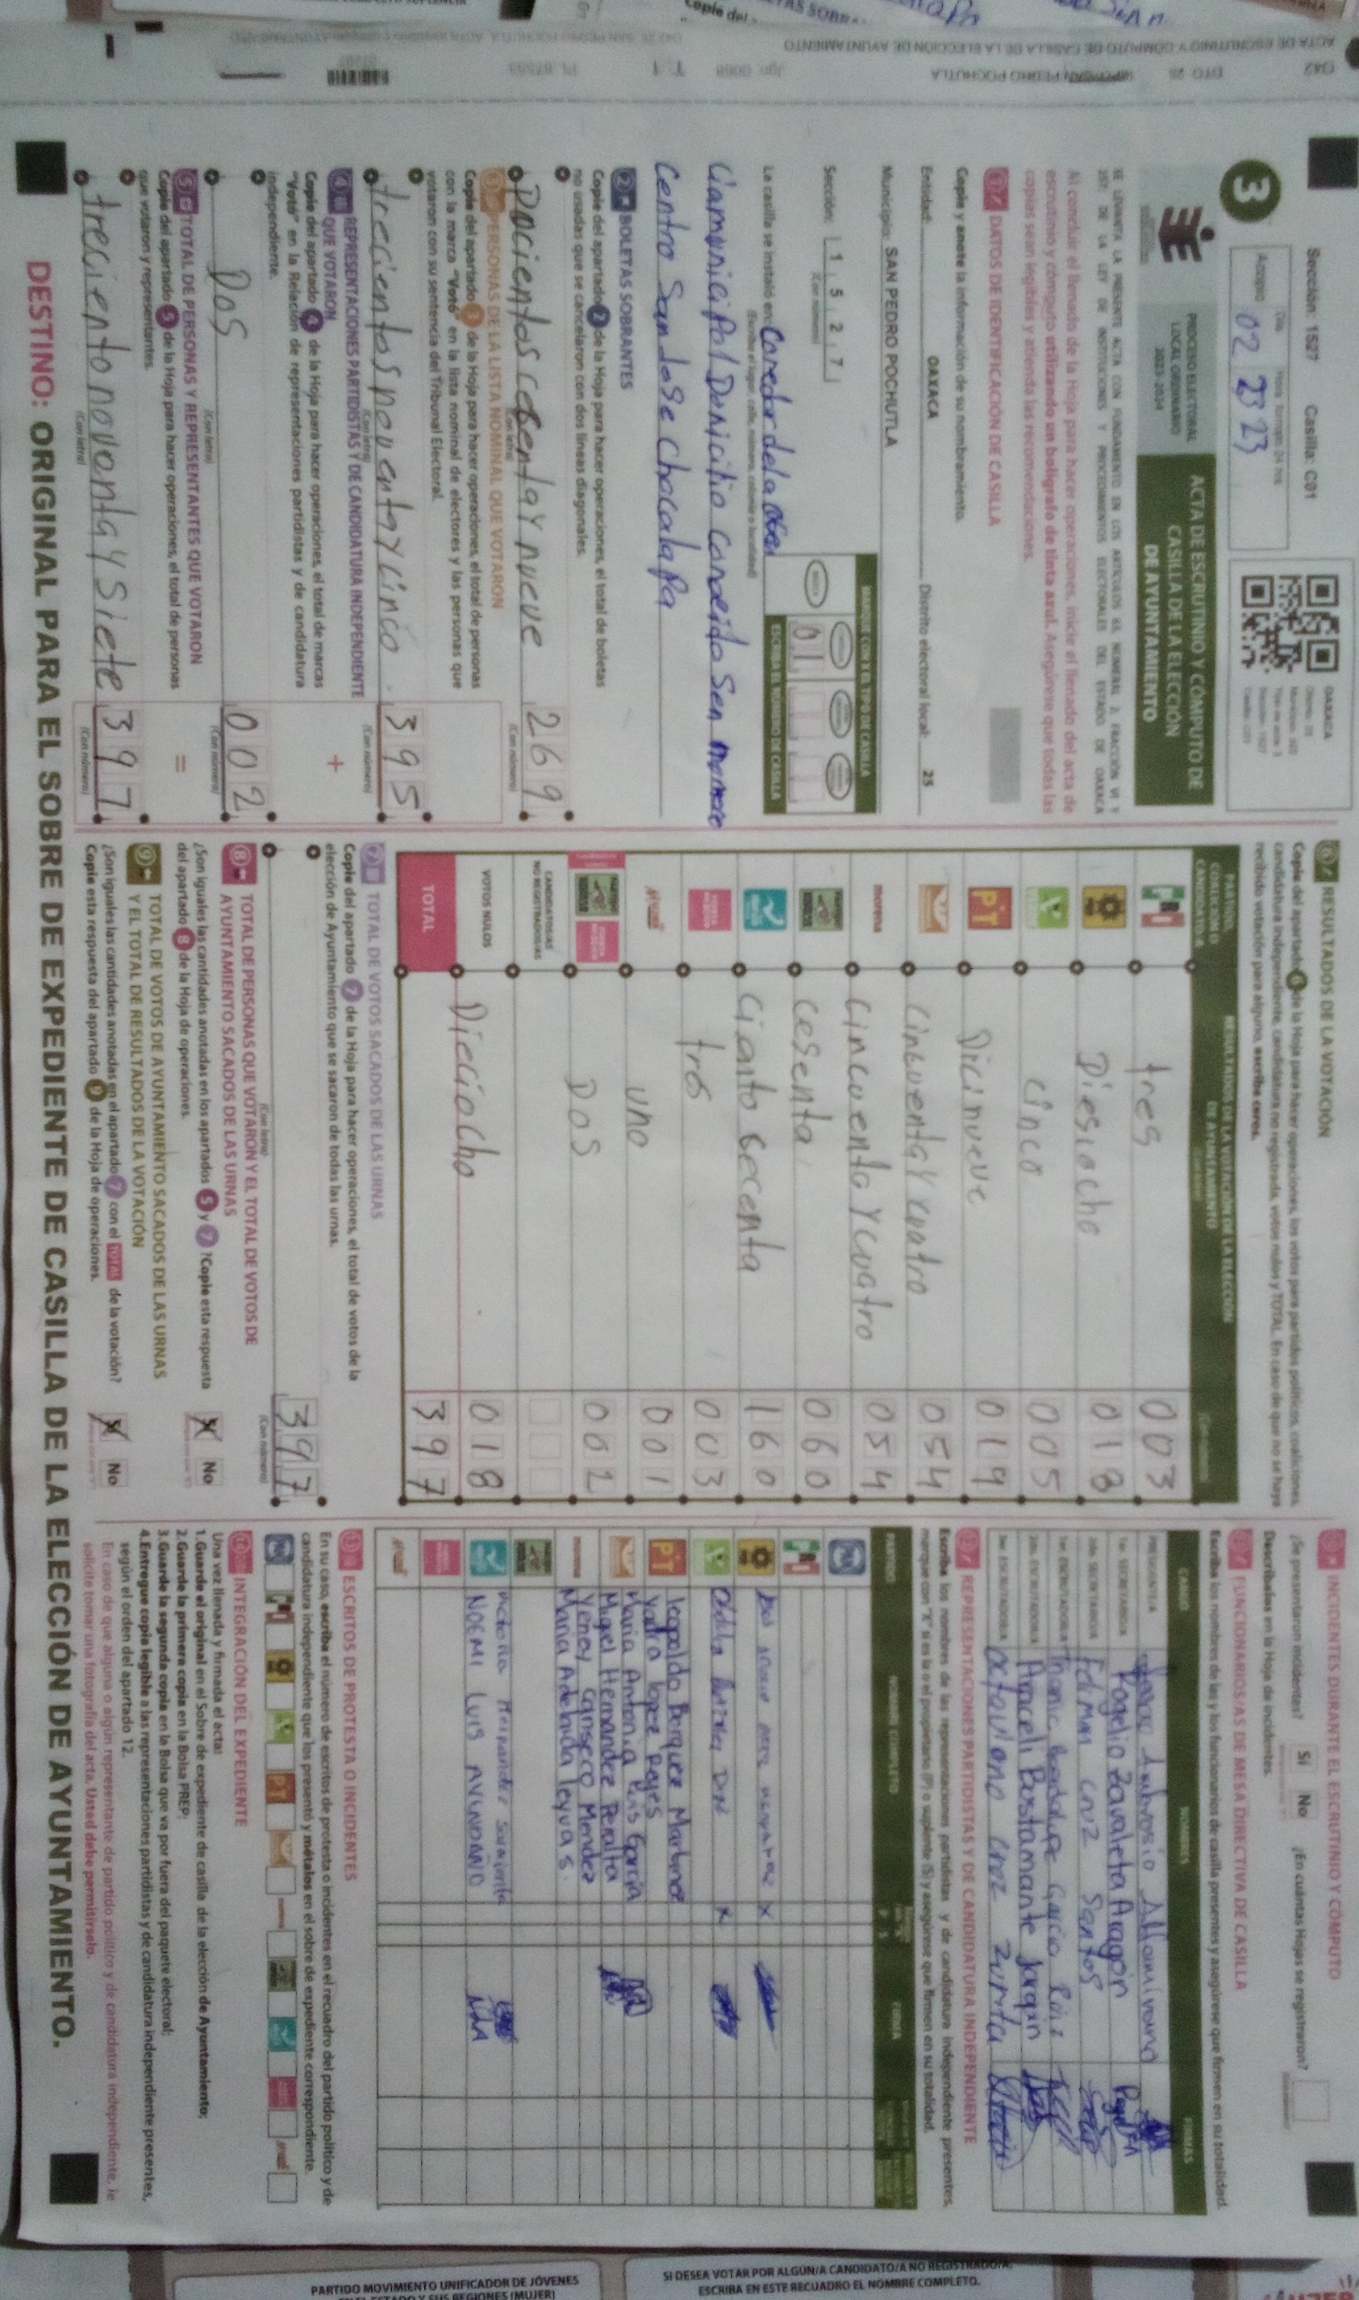 Sección: 1527 Casilla: C01
3
Acopio
02 23 23
OAXACA
PROCESO ELECTORAL
LOCAL ORDINARIO
2023-2024
ACTA DE ESCRUTINIO Y CÓMPUTO DE
CASILLA DE LA ELECCIÓN
DE AYUNTAMIENTO
Al concluir el llenado de la Hoja para hacer operaciones, inicie el llenado del acta de
escrutinio y cómputo utilizando un bolígrafo de tinta azul. Asegúrese que todas las
copias sean legibles y atienda las recomendaciones.
1 DATOS DE IDENTIFICACIÓN DE CASILLA
Copie y anote la información de su nombramiento.
Entidad: OAXACA Distrito electoral local: 25
Municipio: SAN PEDRO POCHUTLA
Sección: 1 5 2 7
(Con número)
MARQUE CON X EL TIPO DE CASILLA
ESCRIBA EL NÚMERO DE CASILLA
0 1
La casilla se instaló en: Coredor de la
Centro San Jose Chacalapa
2 BOLETAS SOBRANTES
Copie del apartado 2 de la Hoja para hacer operaciones, el total de boletas
no usadas que se cancelaron con dos líneas diagonales.
Docientos cesenta y nueve 269
(Con letra) (Con número)
3 PERSONAS DE LA LISTA NOMINAL QUE VOTARON
Copie del apartado 3 de la Hoja para hacer operaciones, el total de personas
con la marca "Votó" en la lista nominal de electores y las personas que
votaron con su sentencia del Tribunal Electoral.
trecientos noventa y cinco 395
(Con letra) (Con número)
4 REPRESENTACIONES PARTIDISTAS Y DE CANDIDATURA INDEPENDIENTE
QUE VOTARON
Copie del apartado 4 de la Hoja para hacer operaciones, el total de marcas
"Votó" en la Relación de representaciones partidistas y de candidatura
independiente.
+
Dos 002
(Con letra) (Con número)
5 TOTAL DE PERSONAS Y REPRESENTANTES QUE VOTARON
Copie del apartado 5 de la Hoja para hacer operaciones, el total de personas
que votaron y representantes.
=
treciento noventa y siete 397
(Con letra) (Con número)
6 RESULTADOS DE LA VOTACIÓN
Copie del apartado 6 de la Hoja para hacer operaciones, los votos para partidos políticos, coaliciones,
candidatura independiente, candidatura no registrada, votos nulos y TOTAL. En caso de que no se haya
recibido votación para alguno, escriba ceros.
PARTIDO,
COALICIÓN O
CANDIDATO/A
RESULTADOS DE LA VOTACIÓN DE LA ELECCIÓN
DE AYUNTAMIENTO
PRI tres 003
Diesiocho 018
cinco 005
PT Dicinueve 019
Cincuenta y cuatro 054
morena Cincuenta y cuatro 054
cesenta 060
Cianto cecenta 160
tres 003
uno 001
Dos 002
CANDIDATOS/AS
NO REGISTRADOS/AS
VOTOS NULOS Dieciocho 018
TOTAL 397
7 TOTAL DE VOTOS SACADOS DE LAS URNAS
Copie del apartado 7 de la Hoja para hacer operaciones, el total de votos de la
elección de Ayuntamiento que se sacaron de todas las urnas.
397
(Con letra) (Con número)
8 TOTAL DE PERSONAS QUE VOTARON Y EL TOTAL DE VOTOS DE
AYUNTAMIENTO SACADOS DE LAS URNAS
¿Son iguales las cantidades anotadas en los apartados 5 y 7 ? Copie esta respuesta
del apartado 8 de la Hoja de operaciones.
X No
9 TOTAL DE VOTOS DE AYUNTAMIENTO SACADOS DE LAS URNAS
Y EL TOTAL DE RESULTADOS DE LA VOTACIÓN
¿Son iguales las cantidades anotadas en el apartado 7 con el TOTAL de la votación?
Copie esta respuesta del apartado 9 de la Hoja de operaciones.
X No
INCIDENTES DURANTE EL ESCRUTINIO Y CÓMPUTO
¿Se presentaron incidentes? Sí No ¿En cuántas Hojas se registraron?
Descríbalos en la Hoja de incidentes.
FUNCIONARIOS/AS DE MESA DIRECTIVA DE CASILLA
Escriba los nombres de las y los funcionarios de casilla presentes y asegúrese que firmen en su totalidad.
CARGO NOMBRES FIRMAS
Rogelio Zavaleta Aragón
Edman Cruz Santos
Araceli Bustamante Joaquin
Octaviano Cruz Zurita
REPRESENTACIONES PARTIDISTAS Y DE CANDIDATURA INDEPENDIENTE
Escriba los nombres de las representaciones partidistas y de candidatura independiente presentes,
marque con "X" si es la o el propietario (P) o suplente (S) y asegúrese que firmen en su totalidad.
PARTIDO NOMBRE COMPLETO FIRMA
PAN
PRI
X
X
PT leopoldo Borquez Martinez
Yadro lopez Reyes
Maria Antonia Ruis Garcia
Miguel Hernandez Peralta
morena Yeney canseco Mendez
Maria Adelaida leyvas.
NOEMI LUIS AVENDAÑO
ESCRITOS DE PROTESTA O INCIDENTES
En su caso, escriba el número de escritos de protesta o incidentes en el recuadro del partido político y de
candidatura independiente que los presentó y métalos en el sobre de expediente correspondiente.
INTEGRACIÓN DEL EXPEDIENTE
Una vez llenada y firmada el acta:
1.Guarde el original en el Sobre de expediente de casilla de la elección de Ayuntamiento;
2.Guarde la primera copia en la Bolsa PREP;
3.Guarde la segunda copia en la Bolsa que va por fuera del paquete electoral;
4.Entregue copia legible a las representaciones partidistas y de candidatura independiente presentes,
según el orden del apartado 12.
En caso de que alguna o algún representante de partido político y de candidatura independiente, le
solicite tomar una fotografía del acta, Usted debe permitírselo.
DESTINO: ORIGINAL PARA EL SOBRE DE EXPEDIENTE DE CASILLA DE LA ELECCIÓN DE AYUNTAMIENTO.
SI DESEA VOTAR POR ALGÚN/A CANDIDATO/A NO REGISTRADO/A,
ESCRIBA EN ESTE RECUADRO EL NOMBRE COMPLETO.
PARTIDO MOVIMIENTO UNIFICADOR DE JÓVENES